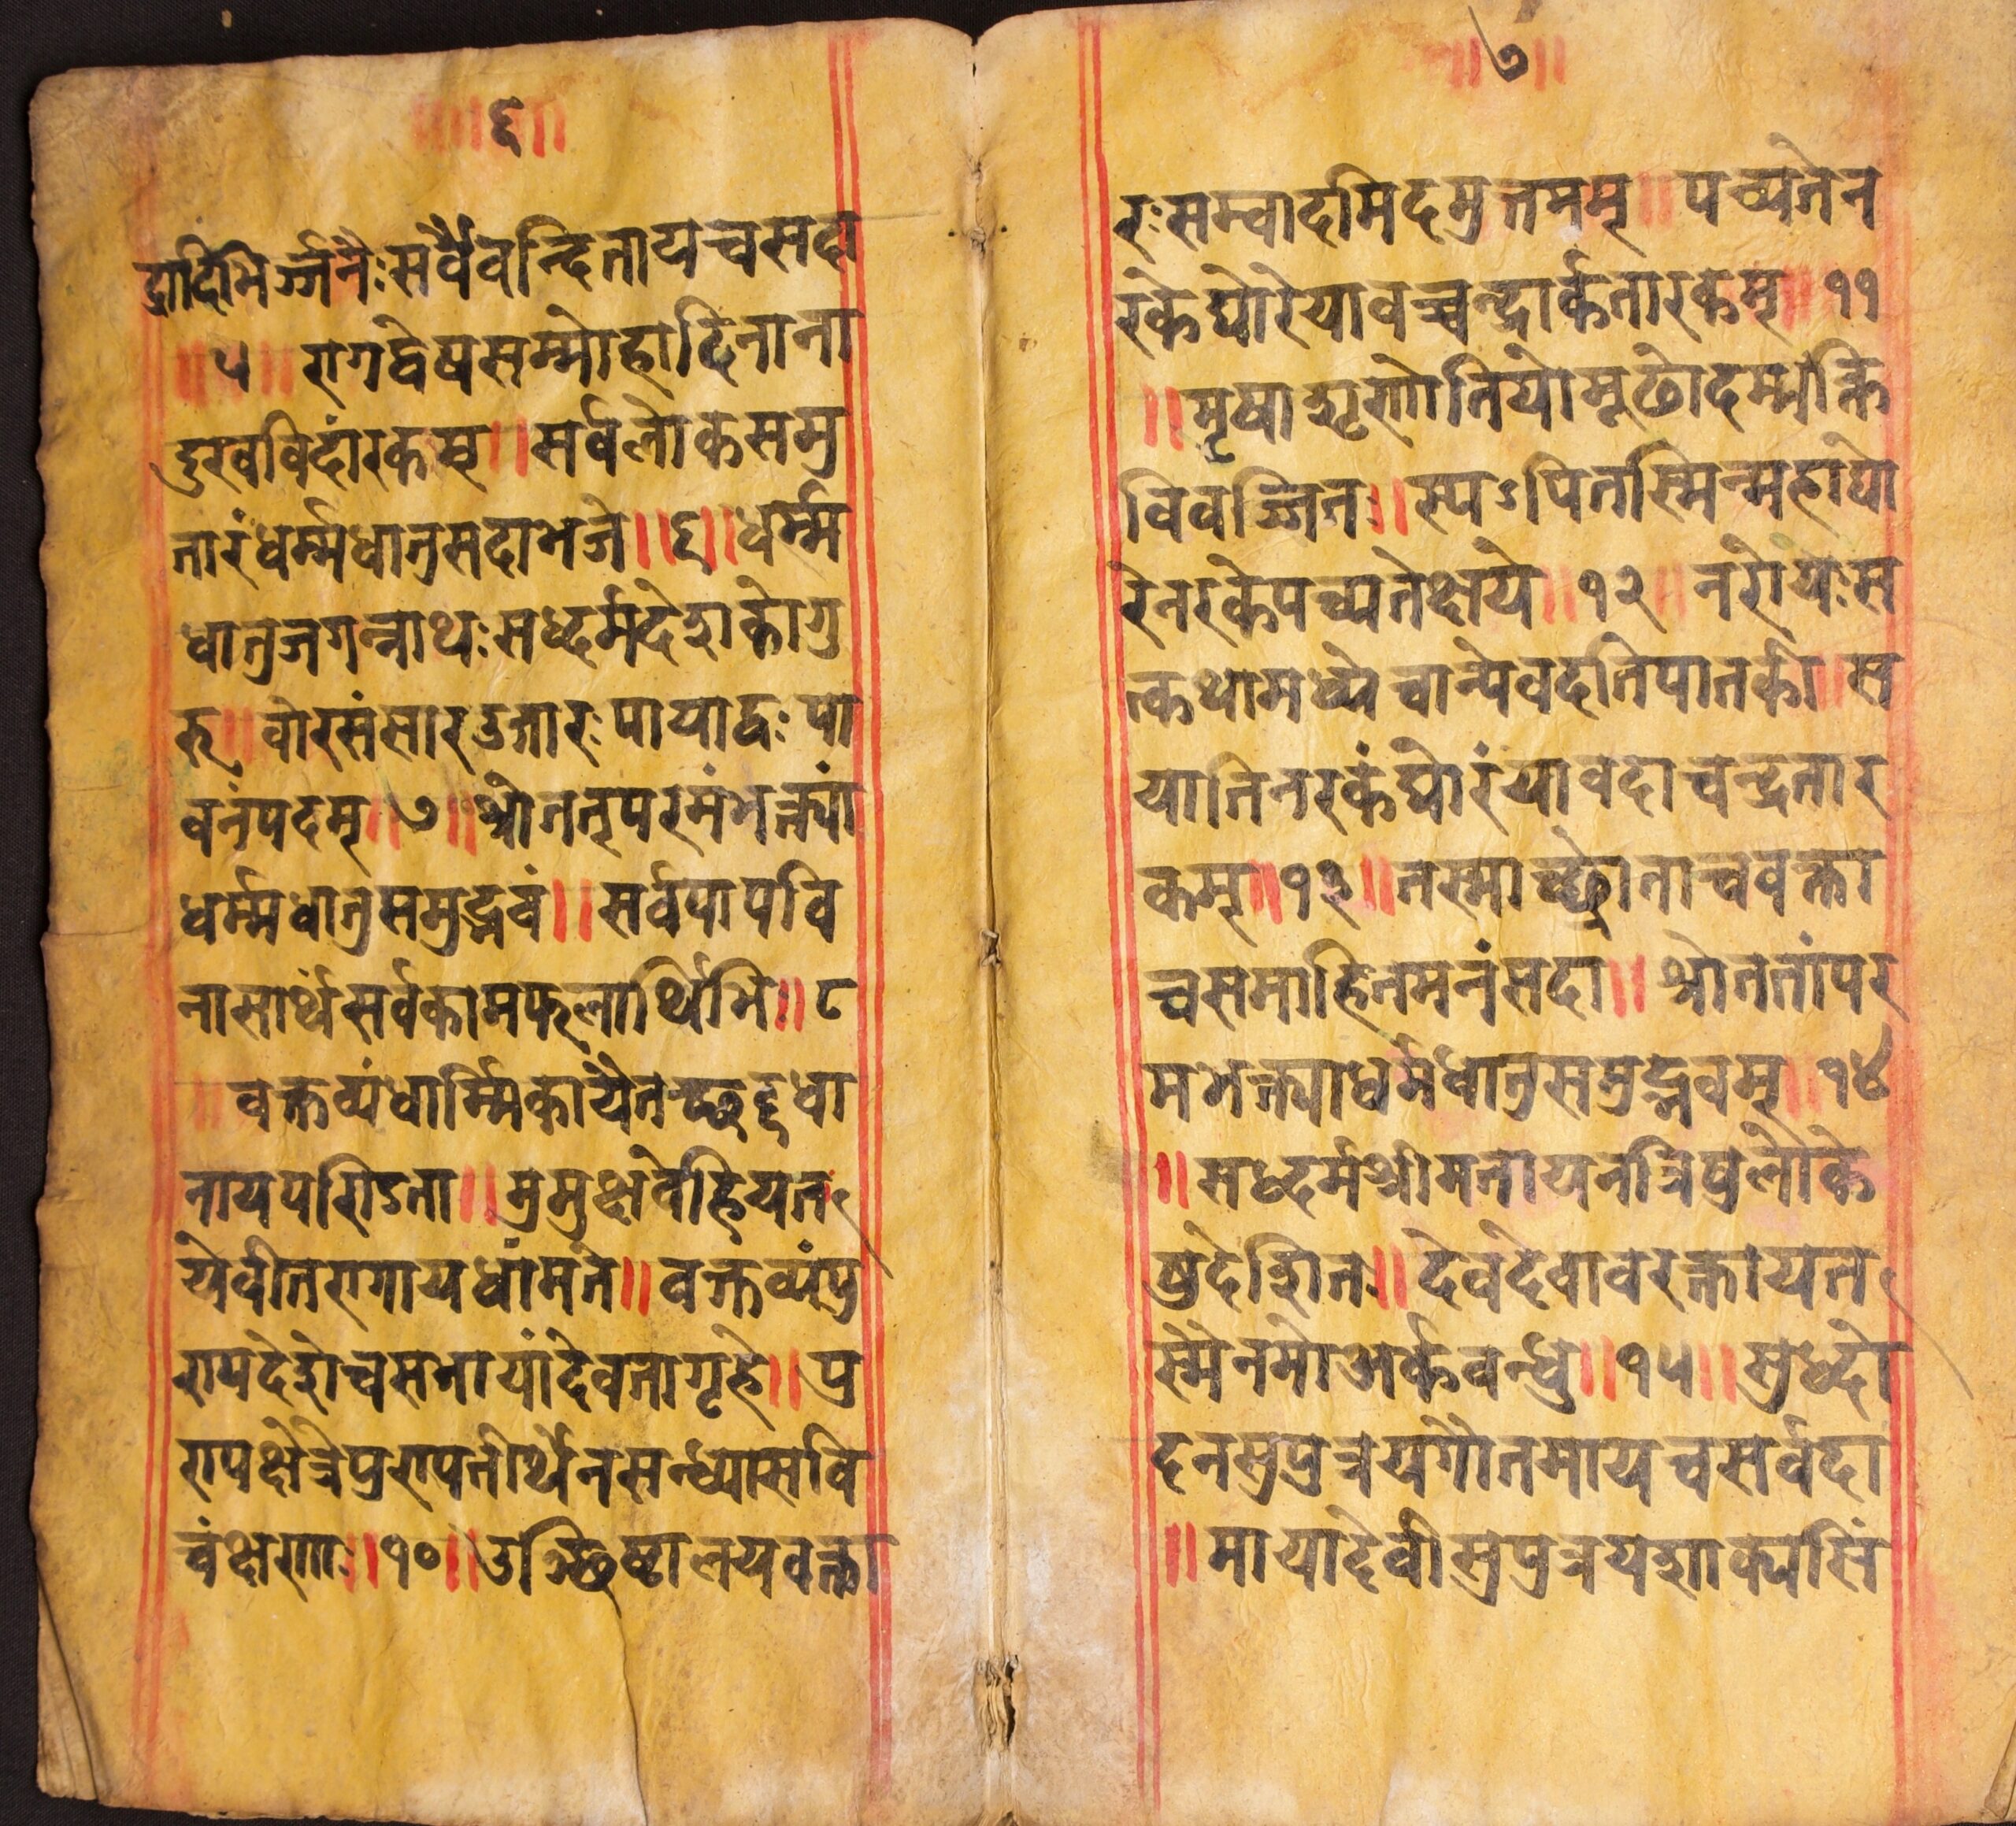 ६
द्रादिभिर्गनैःसर्वैवन्दितायचसदा
॥५॥ रागद्वेषसम्मोहादिनाना
दुःखविदारकम् ॥ सर्वलोकसमु
तारंधर्म्मधातुसदाभजे ॥६॥ धर्म्म
धातुजगन्नाथःसद्धर्मदेशकोगु
रु ॥ घोरसंसारउत्तारःपायाद्वःपा
वनंपदम् ॥७॥ श्रोततृपरमंभक्त्यां
धर्म्मधातुसमुद्भवं ॥ सर्वपापवि
नासार्थंसर्वकामफलार्थिभिः ॥८
॥ वक्तव्यंधार्म्मिकायैतच्छ्रद्दधा
नायपण्डिता ॥ मुमुक्षवेहियत
येवीतरागायधीमते ॥ वक्तव्यंपु
ण्यदेशेचसभायांदेवतागृहे ॥ पु
ण्यक्षेत्रेपुण्यतीर्थेनसन्ध्यासवि
चंक्षणः ॥१०॥ उच्छिष्टालयवक्ता
७
रःसम्वादमिदमुत्तमम् ॥ पच्यतेन
रकेघोरेयावच्चन्द्रार्कतारकम् ॥११
॥ मृषाशृणोतियोमूढोदम्भक्ति
विवर्ज्जितः ॥ स्पऽपितस्मिन्महाघो
रेनरकेपच्यतेक्षये ॥१२॥ नरोयःस
त्कथामध्येचान्येवदतिपातकी ॥ स
यातिनरकंघोरंयावदाचन्द्रतार
कम् ॥१३॥ तस्माच्छ्रोताचवक्ता
चसमाहितमनंसदा ॥ श्रोततांपर
मभक्त्याधर्मधातुसमुद्भवम् ॥१४
॥ सद्धर्मश्रीमतायनत्रिषुलोके
षुदेशितः ॥ देवदेवावरक्तायत
स्मैनमोअर्कबन्धु ॥१५॥ सुद्धो
दनसुपुत्रयगौतमायचसर्वदा
॥ मायादेवीसुपुत्रयशाक्यसिं